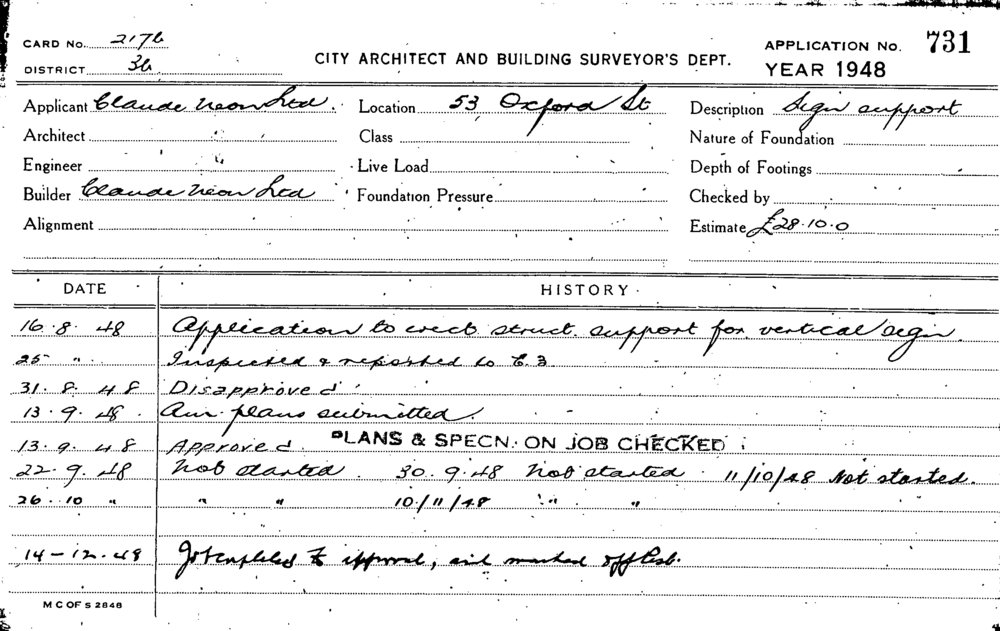 CARD No. 2176
DISTRICT 3b
CITY ARCHITECT AND BUILDING SURVEYOR'S DEPT.
APPLICATION No. 731
YEAR 1948
Applicant Claude Neon Ltd. Location 53 Oxford St Description Sign support
Architect Class Nature of Foundation
Engineer Live Load Depth of Footings
Builder Claude Neon Ltd Foundation Pressure Checked by
Alignment Estimate £28.10.0
DATE HISTORY
16.8.48 Application to erect struct. support for vertical sign.
25 " Inspected & reported to
31.8.48 Disapproved
13.9.48. Am. plans submitted.
13.9.48 Approved. PLANS & SPECN. ON JOB CHECKED
22.9.48 Not started. 30.9.48 Not started 11/10/48 Not started.
26.10 " " " 10/11/48 " "
14-12.48 Job completed to approval, and marked off
M C OF S 2848